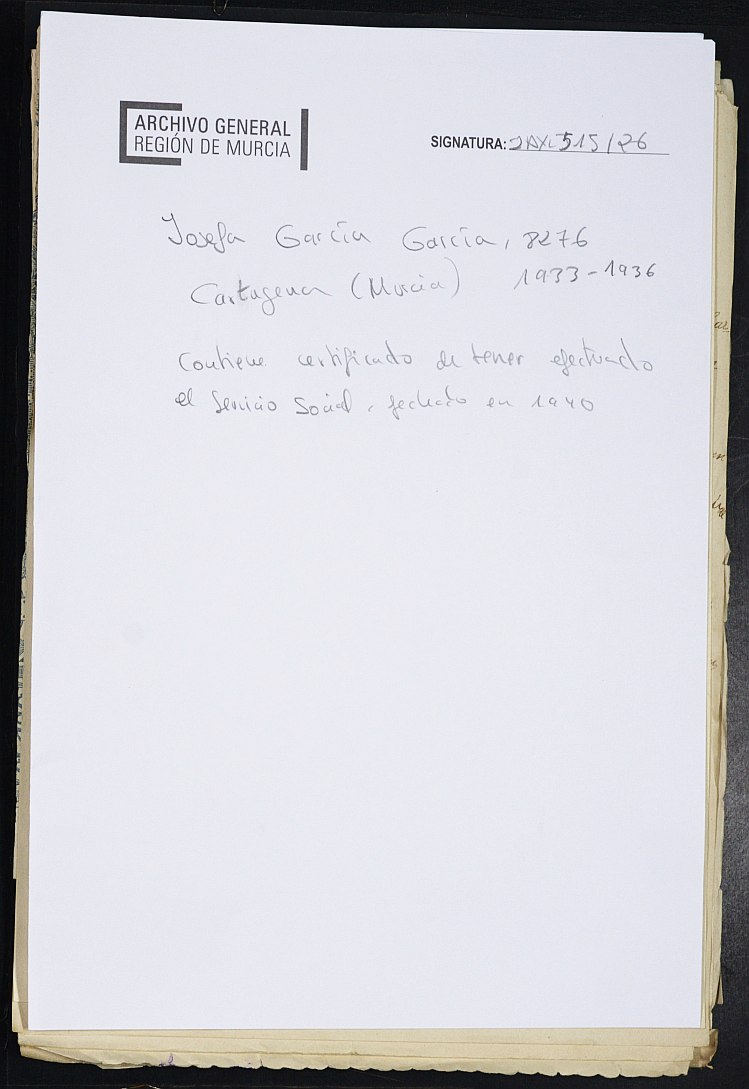 ARCHIVO GENERAL
REGIÓN DE MURCIA
SIGNATURA: JAXL 515/26
Josefa García García, 8276
Cartagena (Murcia) 1933-1936
Contiene certificado de tener efectuado
el Servicio Social, fechado en 1940